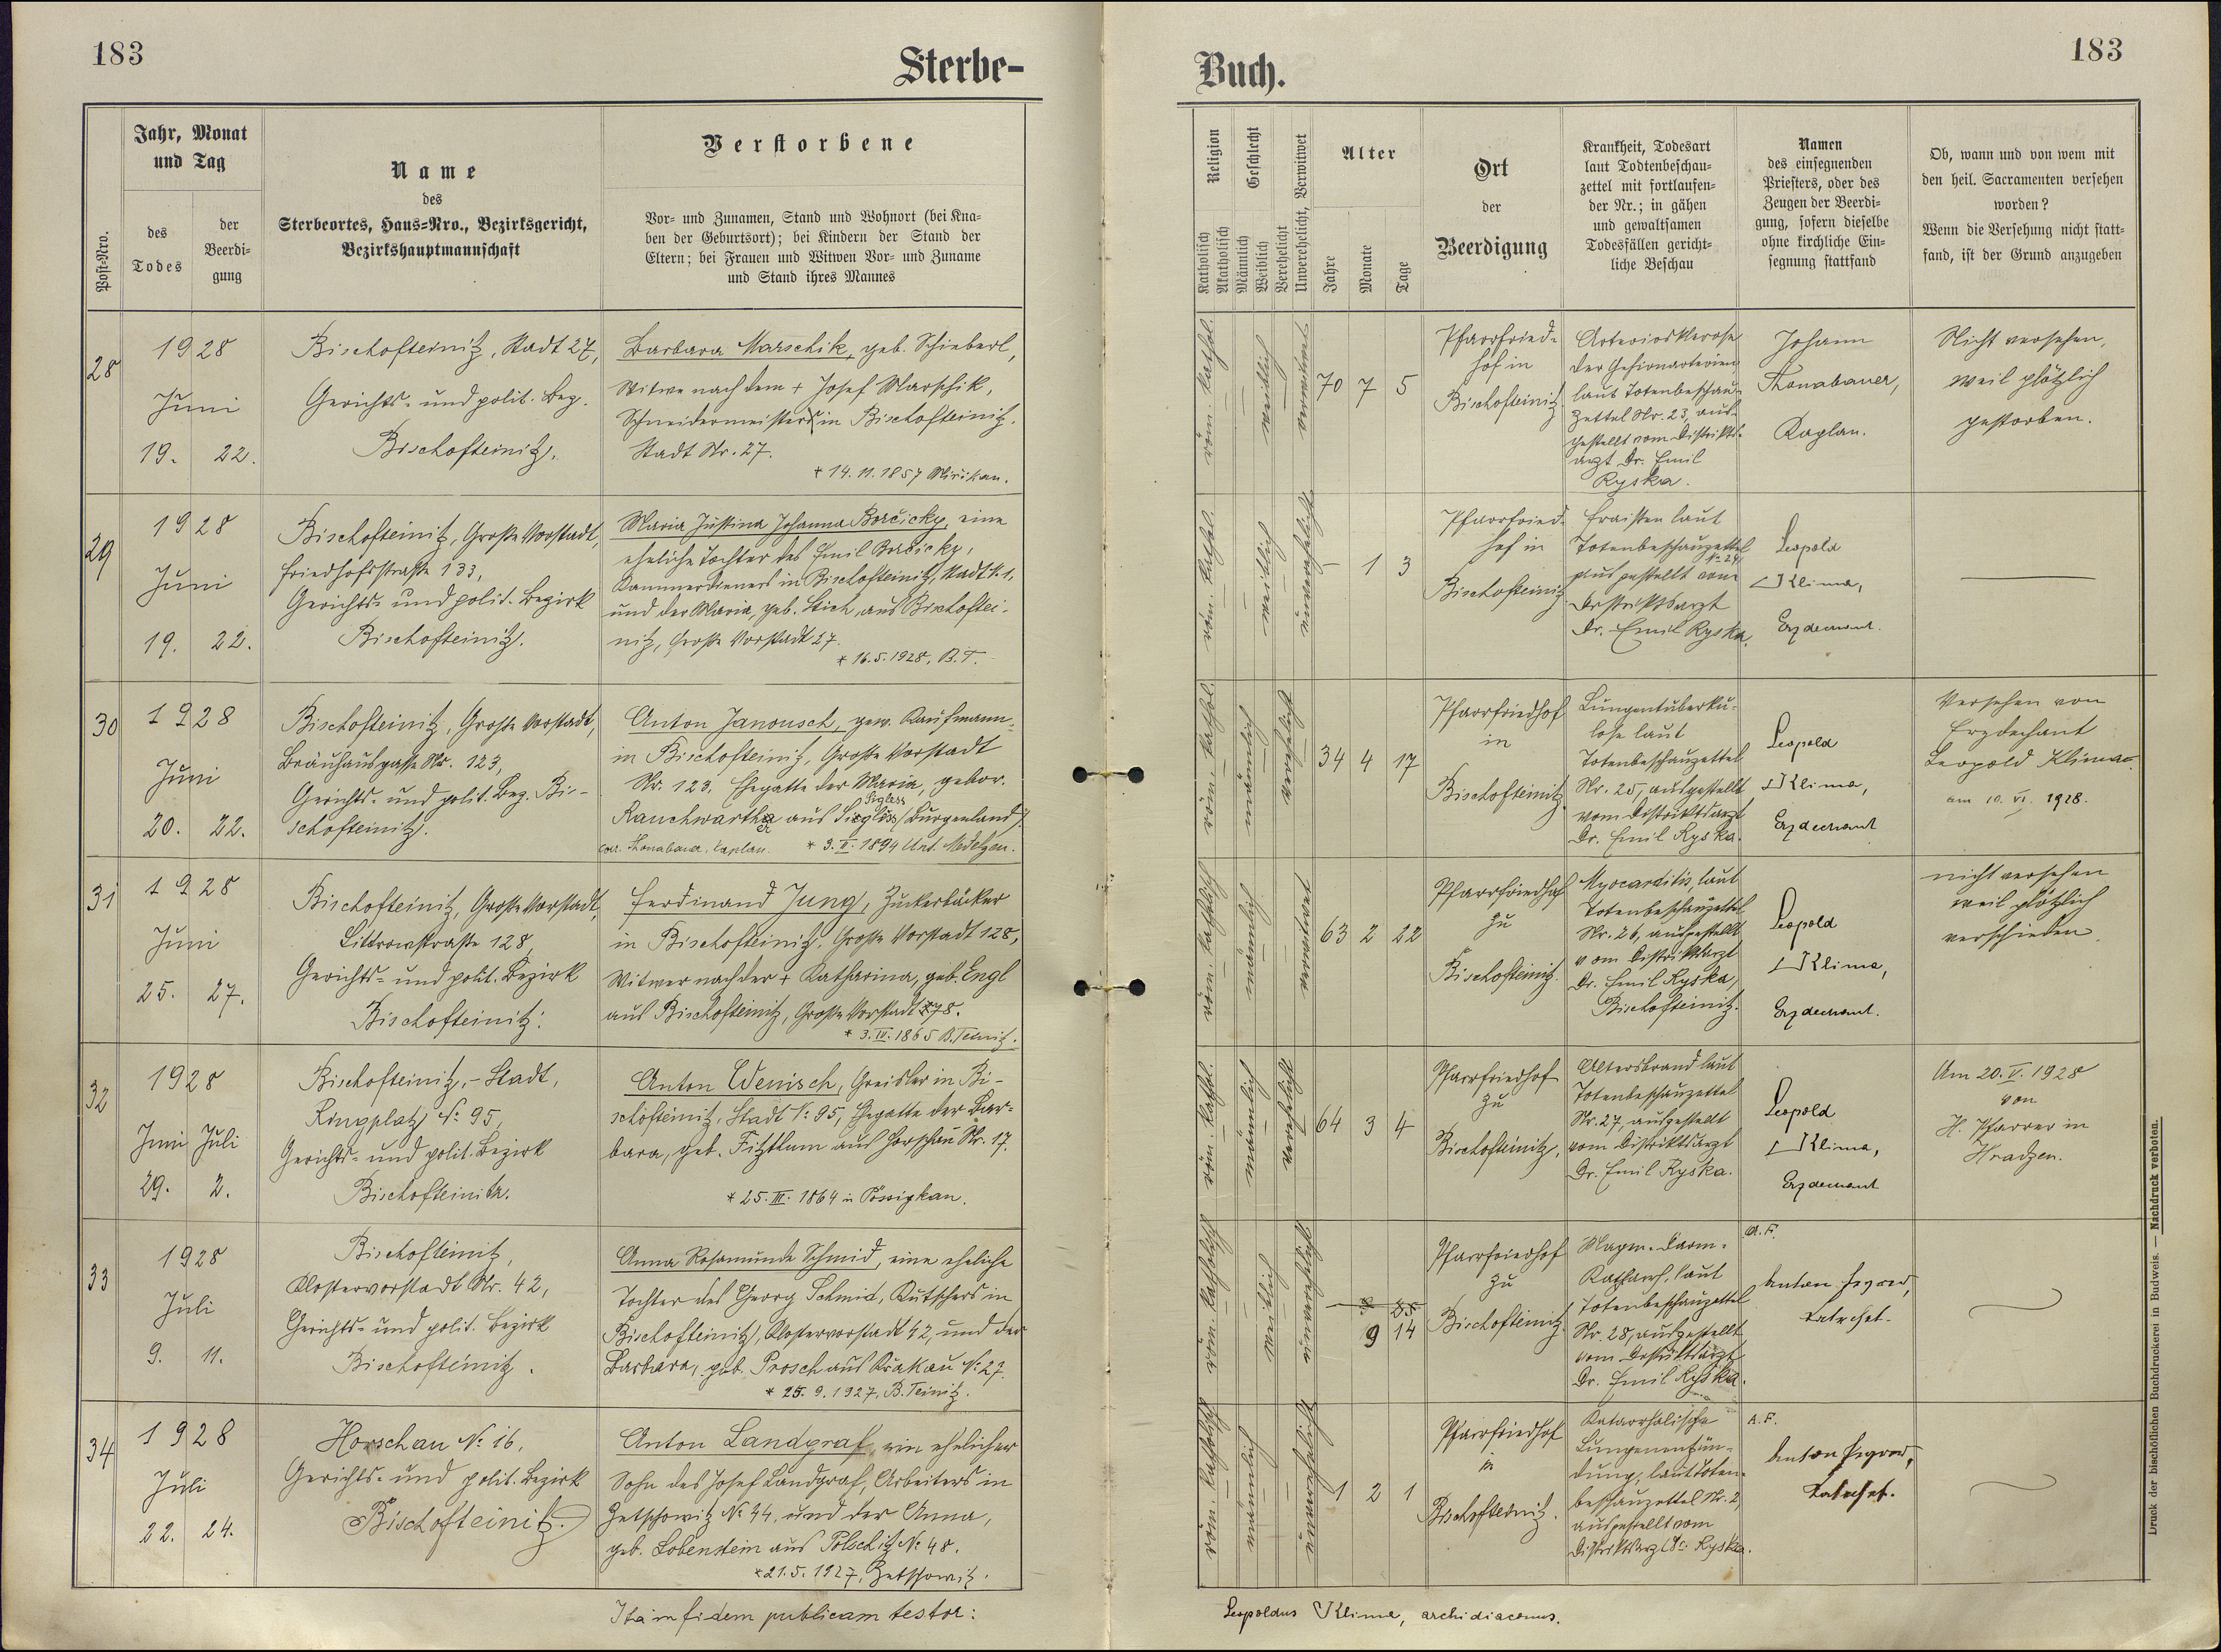 183
Sterbe-
Jahr, Monat
und Tag
Post-Nro.
des
Todes
der
Beerdi-
gung
Name
des
Sterbeortes, Haus-Nro., Bezirksgericht,
Bezirkshauptmannschaft
Verstorbene
Vor- und Zunamen, Stand und Wohnort (bei Kna-
ben der Geburtsort); bei Kindern der Stand der
Eltern; bei Frauen und Witwen Vor- und Zuname
und Stand ihres Mannes
28
1928
Juni
19. 22.
Bischofteinitz, Stadt 27,
Gerichts- und polit. Bez.
Bischofteinitz.
Barbara Marschik, geb. Schieberl,
Witwe nach dem + Josef Marschik,
Schneidermeisters in Bischofteinitz.
Stadt Nr. 27.
* 14.11.1857 Mirikau.
29
1928
Juni
19. 22.
Bischofteinitz, Große Vorstadt,
Friedhofstraße 133,
Gerichts- und polit. Bezirk
Bischofteinitz.
Maria Justina Johanna Borčicky, eine
eheliche Tochter des Emil Borčicky,
Kammerdieners in Bischofteinitz, Stadt N. 1,
und der Maria, geb. Stich, aus Bischoftei-
nitz, Große Vorstadt 27.
* 16.5.1928, B.T.
30
1928
Juni
20. 22.
Bischofteinitz, Große Vorstadt,
Bräuhausgasse Nr. 123,
Gerichts- und polit. Bez. Bi-
schofteinitz.
Anton Janousch, gew. Kaufmann
in Bischofteinitz, Große Vorstadt
Nr. 123, Ehegatte der Maria, gebor.
Sigless
Rauchwarth aus (Burgenland).
corr. Thonabauer, Kaplan. * 3.II.1894 Unt. Medelzen.
31
1928
Juni
25. 27.
Bischofteinitz, Große Vorstadt,
Littrowstraße 128,
Gerichts- und polit. Bezirk
Bischofteinitz.
Ferdinand Jung, Zuckerbäcker
in Bischofteinitz, Große Vorstadt 128,
Witwer nach der + Katharina, geb. Engl
aus Bischofteinitz, Große Vorstadt 78.
* 3.IV.1865 B.Teinitz.
32
1928
Juni Juli
29. 2.
Bischofteinitz,- Stadt,
Ringplatz No 95,
Gerichts- und polit. Bezirk
Bischofteinitz.
Anton Wenisch, Greisler in Bi-
schofteinitz, Stadt No 95, Ehegatte der Bar-
bara, geb. Fitzthum aus Horschau Nr. 17.
* 25.III.1864 in Pössigkau.
33
1928
Juli
9. 11.
Bischofteinitz,
Klostervorstadt Nr. 42,
Gerichts- und polit. Bezirk
Bischofteinitz.
Anna Rosamunde Schmid, eine eheliche
Tochter des Georg Schmid, Kutschers in
Bischofteinitz, Klostervorstadt 42, und der
Barbara, geb. Prosch aus Krakau No 27.
* 25.9.1927, B.Teinitz.
34
1928
Juli
22. 24.
Horschau No 16,
Gerichts- und polit. Bezirk
Bischofteinitz.
Anton Landgraf, ein ehelicher
Sohn des Josef Landgraf, Arbeiters in
Zetschowitz No 44, und der Anna,
geb. Lobenstein aus Polschitz No 48.
* 21.5.1927, Zetschowitz.
Ita in fidem publicam testor:
183
Buch.
Religion
Katholisch
Akatholisch
Geschlecht
Männlich
Weiblich
Verehelicht
Unverehelicht, Verwitwet
Alter
Jahre
Monate
Tage
Ort
der
Beerdigung
Krankheit, Todesart
laut Todtenbeschau-
zettel mit fortlaufen-
der Nr.; in gähen
und gewaltsamen
Todesfällen gericht-
liche Beschau
Namen
des einsegnenden
Priesters, oder des
Zeugen der Beerdi-
gung, sofern dieselbe
ohne kirchliche Ein-
segnung stattfand
Ob, wann und von wem mit
den heil. Sacramenten versehen
worden?
Wenn die Versehung nicht statt-
fand, ist der Grund anzugeben
röm. kathol.
weiblich
verwitwet
70 7 5
Pfarrfried-
hof in
Bischofteinitz
Arteriosklerose
der Gehirnarterien
laut Totenbeschau-
zettel Nr. 23, aus-
gestellt vom Distrikts-
arzt Dr. Emil
Ryska.
Johann
Thonabauer,
Kaplan.
Nicht versehen,
weil plötzlich
gestorben.
röm. kathol.
weiblich
unverehelicht
- 1 3
Pfarrfried-
hof in
Bischofteinitz
Fraisen laut
Totenbeschauzettel
No 24,
ausgestellt vom
Distriktsarzt
Dr. Emil Ryska.
Leopold
Klima,
Erzdechant.
röm. kathol.
männlich
verehelicht
34 4 17
Pfarrfriedhof
in
Bischofteinitz.
Lungentuberku-
lose laut
Totenbeschauzettel
Nr. 25, ausgestellt
vom Distriktsarzt
Dr. Emil Ryska.
Leopold
Klima,
Erzdechant
Versehen von
Erzdechant
Leopold Klima
am 10. VI. 1928.
röm. katholisch
männlich
verwitwet
63 2 22
Pfarrfriedhof
zu
Bischofteinitz.
Myocarditis, laut
Totenbeschauzettel
Nr. 26, ausgestellt
vom Distriktsarzt
Dr. Emil Ryska,
Bischofteinitz.
Leopold
Klima,
Erzdechant.
nicht versehen
weil plötzlich
verschieden
röm. kathol.
männlich
verehelicht
64 3 4
Pfarrfriedhof
zu
Bischofteinitz.
Altersbrand laut
Totenbeschauzettel
Nr. 27, ausgestellt
vom Distriktsarzt
Dr. Emil Ryska.
Leopold
Klima,
Erzdechant
Am 20. V. 1928
von
H. Pfarrer in
Hradzen.
röm. katholisch
weiblich
unverehelicht
9 14
Pfarrfriedhof
zu
Bischofteinitz.
Magen-Darm-
Katharrh, laut
Totenbeschauzettel
Nr. 28, ausgestellt
vom Distriktsarzt
Dr. Emil Ryska.
A.F.
Anton
Katechet.
röm. katholisch
männlich
unverehelicht
1 2 1
Pfarrfriedhof
in
Bischofteinitz.
Katarrhalische
Lungenentzün-
dung, laut Toten-
beschauzettel Nr. 2,
ausgestellt vom
Distriktsarzt Dr. Ryska.
A.F.
Anton
Katechet.
Leopoldus Klima, archidiaconus.
Druck der bischöflichen Buchdruckerei in Budweis. — Nachdruck verboten.